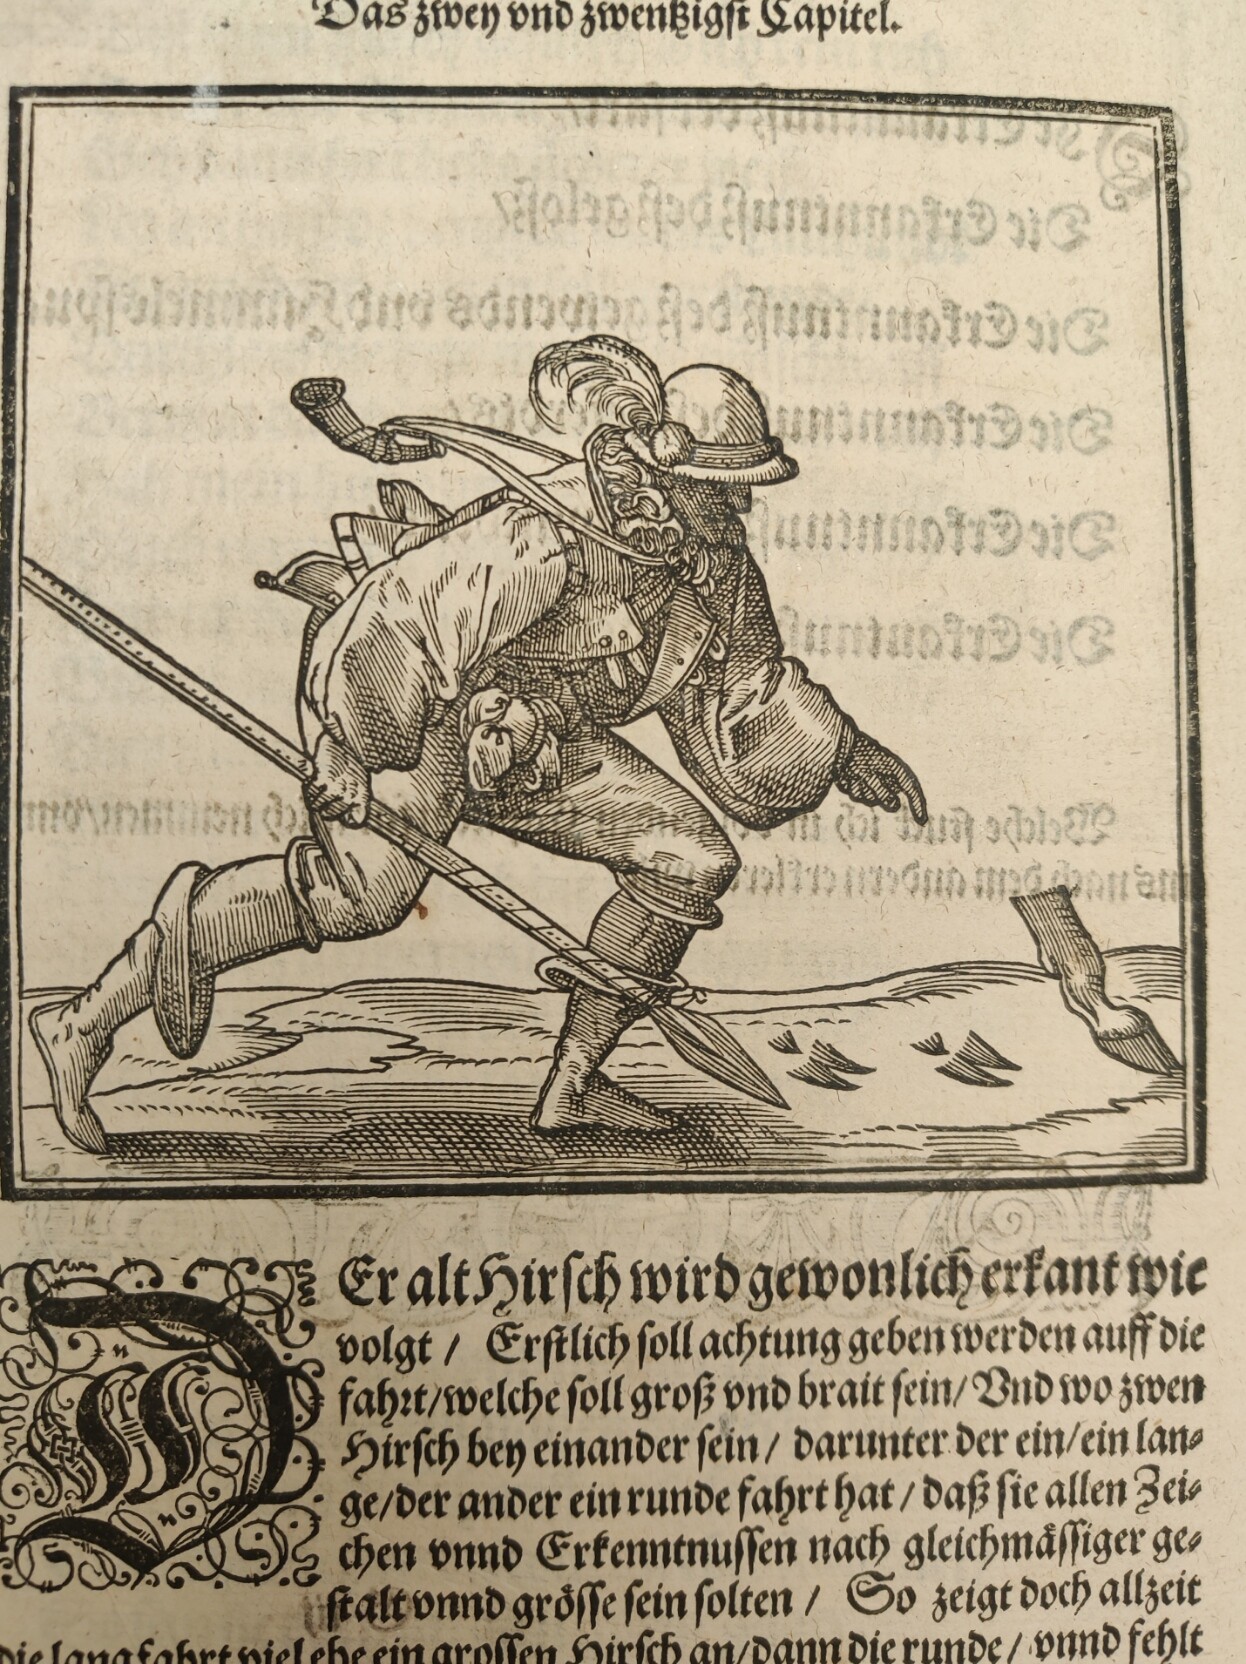 Das zwey vnd zwentzigst Capitel.
DEr alt Hirsch wird gewonlich erkant wie
volgt / Erstlich soll achtung geben werden auff die
fahrt/welche soll groß vnd brait sein/ Vnd wo zwen
Hirsch bey einander sein / darunter der ein/ein lan⸗
ge/der ander ein runde fahrt hat / daß sie allen Zei⸗
chen vnnd Erkenntnussen nach gleichmässiger ge⸗
stalt vnnd grösse sein solten / So zeigt doch allzeit
die lang fahrt viel ehe ein grossen Hirsch an/dann die runde / vnnd fehlt